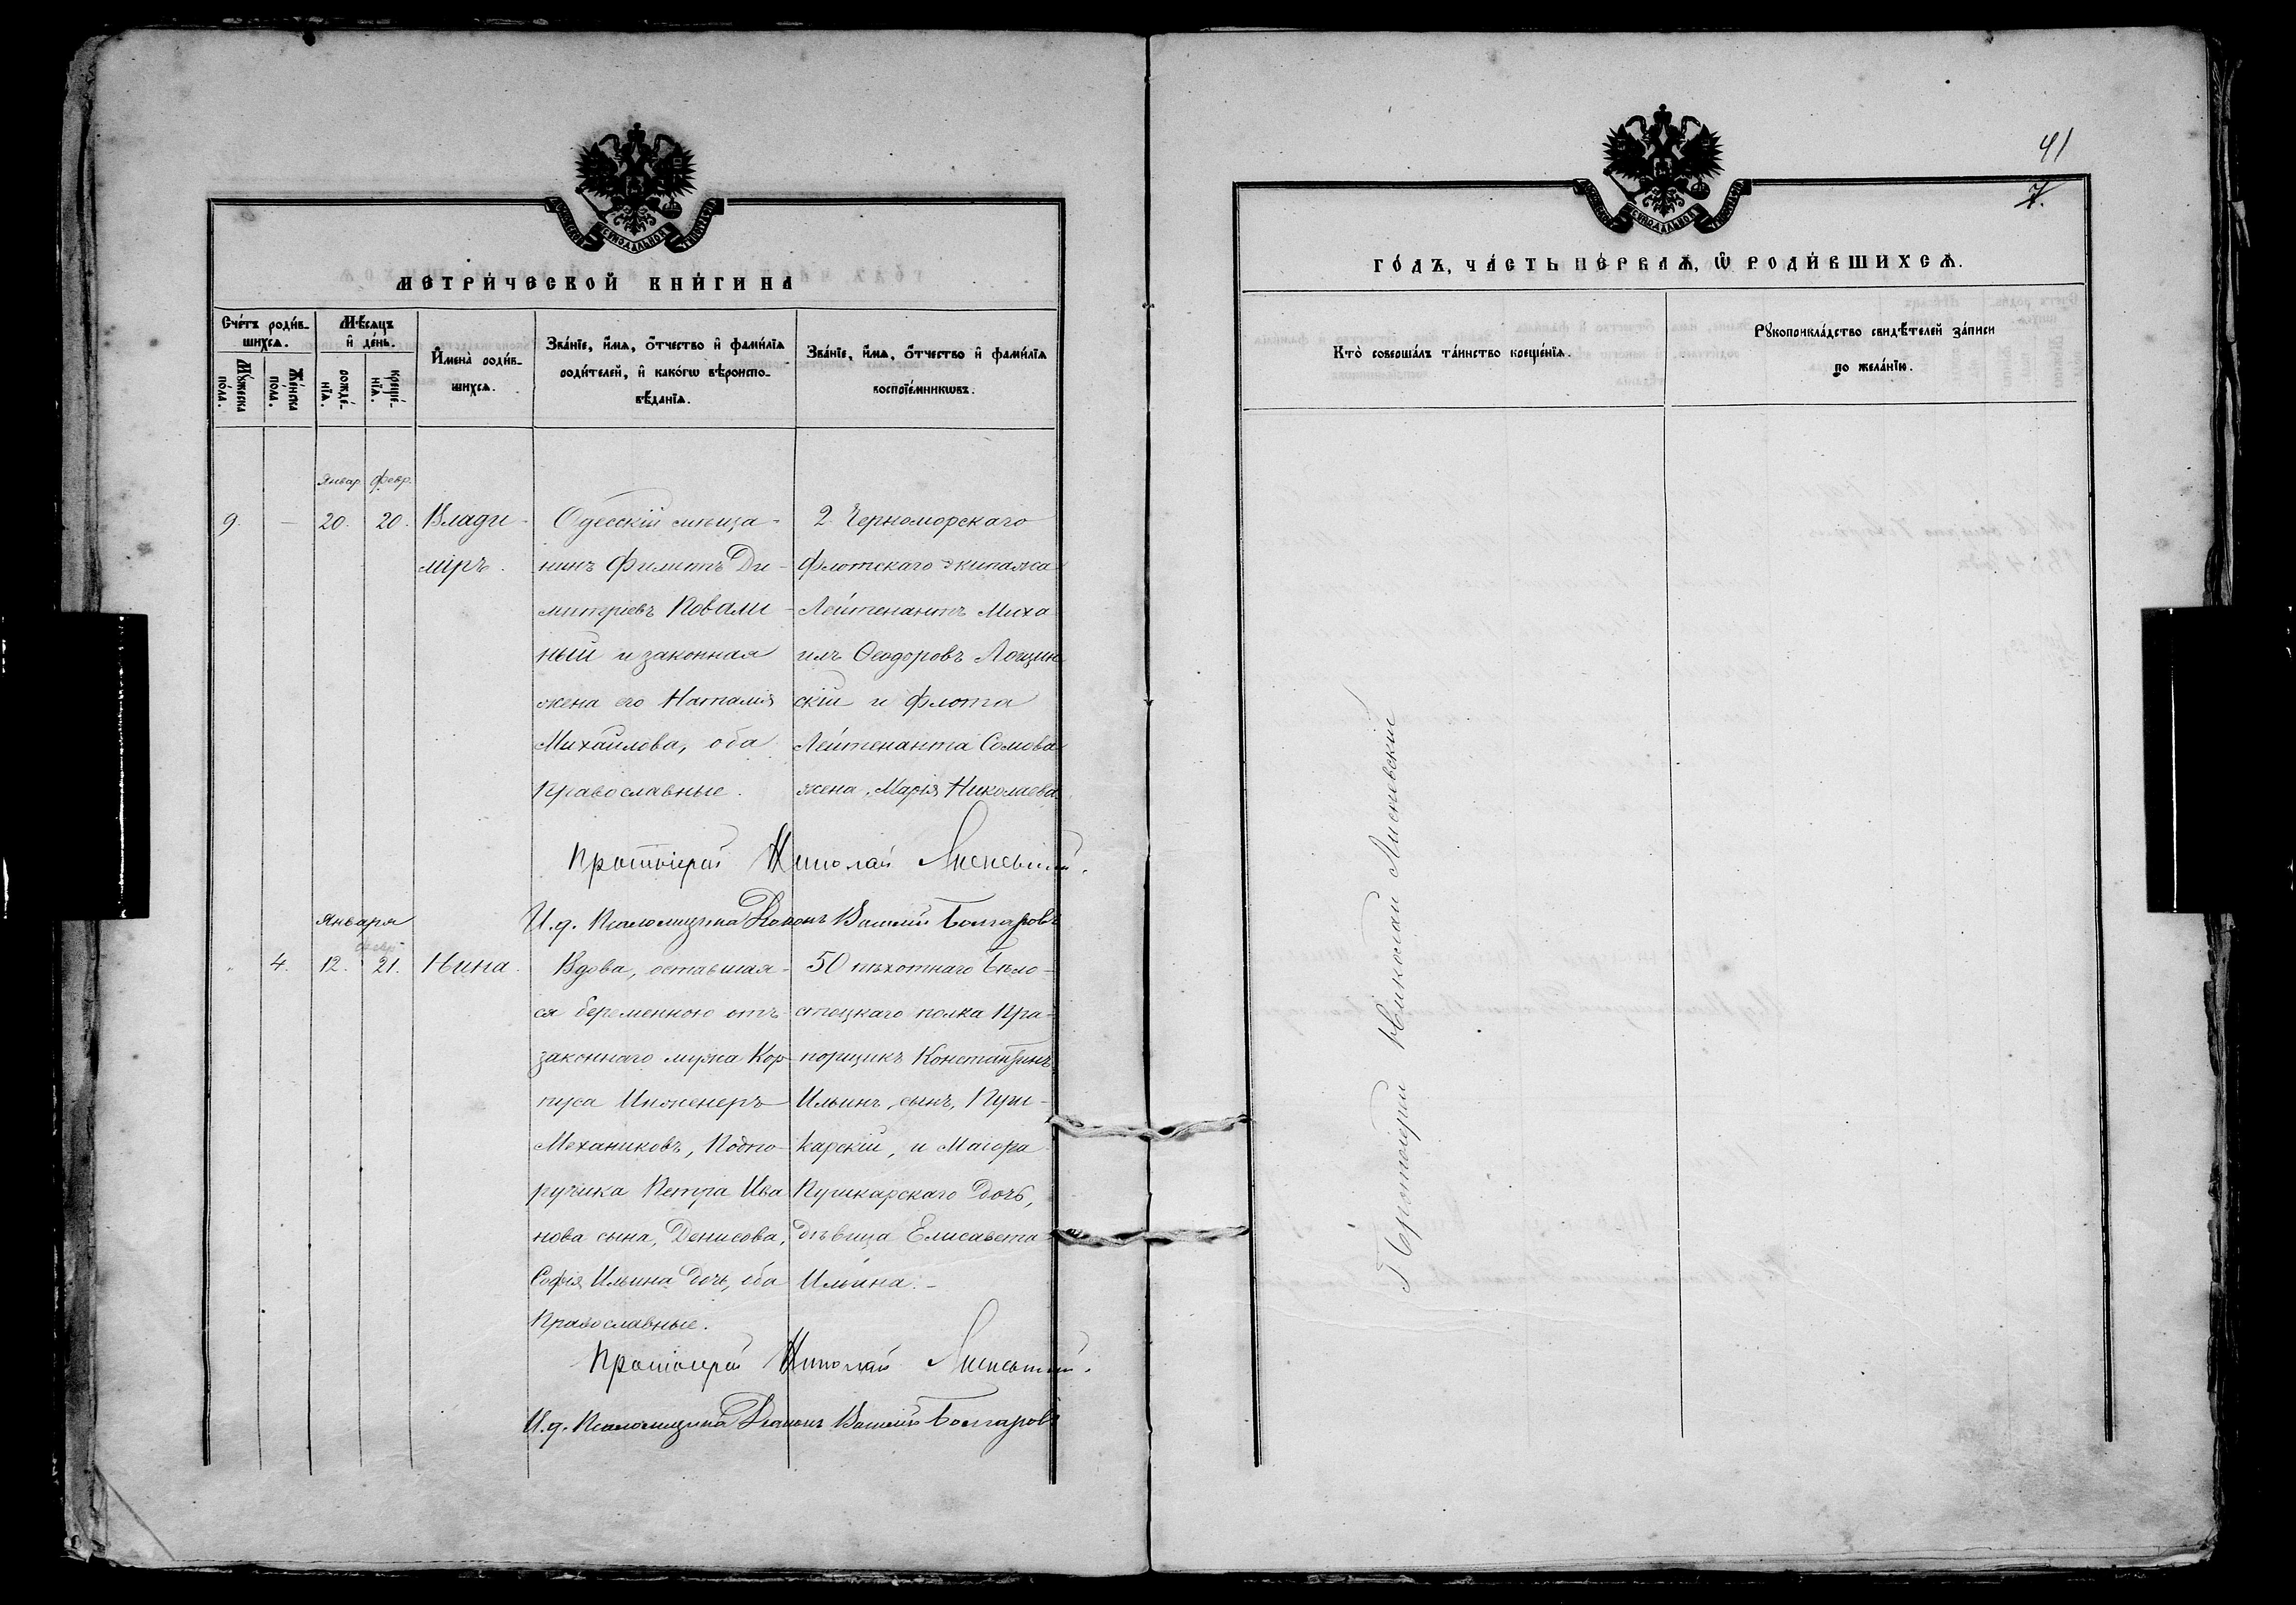 МЕТРИ́ЧЕСКОЙ КНИ́ГИ НА
Сче́тъ роди́в-
шихсѧ.
Мꙋ́жеска
по́ла.
Же́нска
по́ла.
Мѣ́сѧцъ
и҆ де́нь.
рожде́-
нїѧ.
креще́-
нїѧ.
И҆мена̀ роди́в-
шихсѧ.
Зва́нїе, и҆́мѧ, ѻ҆́тчество и҆ фами́лїѧ
роди́телей, и҆ како́гѡ вѣроиспо-
вѣ́данїѧ.
Зва́нїе, и҆́мѧ, ѻ҆́тчество и҆ фами́лїѧ
воспрїе́мникѡвъ.
Январ. Февр.
9. — 20. 20. Влади-
міръ.
Одесскій мѣща-
нинъ Филиппъ Ди-
митріевъ Ковали-
ный и законная
жена его Наталія
Михайлова, оба
православные.
2 Черноморскаго
Флотскаго экипажа
Лейтенантъ Миха
илъ Ѳеодоровъ Лощин
скій и флота
Лейтенанта Сомова
жена, Марія Николаева.
Протоіерей Николай
И.д. Псаломщика Діаконъ Василій Болгаровъ
Января
Февр.
4. 12. 21. Нина.
Вдова, оставшая-
ся беременною отъ
законнаго мужа Кор-
пуса Инженеръ
Механиковъ, Подпо-
ручика Петра Ива
нова сына, Денисова,
Софія Ильина дочь, оба
Православные.
50 пѣхотнаго Бѣло-
стоцкаго полка Пра-
порщикъ Константинъ
Ильинъ сынъ, Пуш-
карскій, и Маіора
Пушкарскаго дочь,
дѣвица Елисавета
Ильина. –
Протоіерей Николай
И.д. Псаломщика Діаконъ Василій Болгаровъ
41
7.
ГО́ДЪ, ЧА́СТЬ ПЕ́РВАѦ, Ѡ҆ РОДИ́ВШИХСѦ.
Кто̀ соверша́лъ та́инство креще́нїѧ.
Рꙋкоприкла́дство свидѣ́телей за́писи
по жела́нїю.
Протоіерей Николай